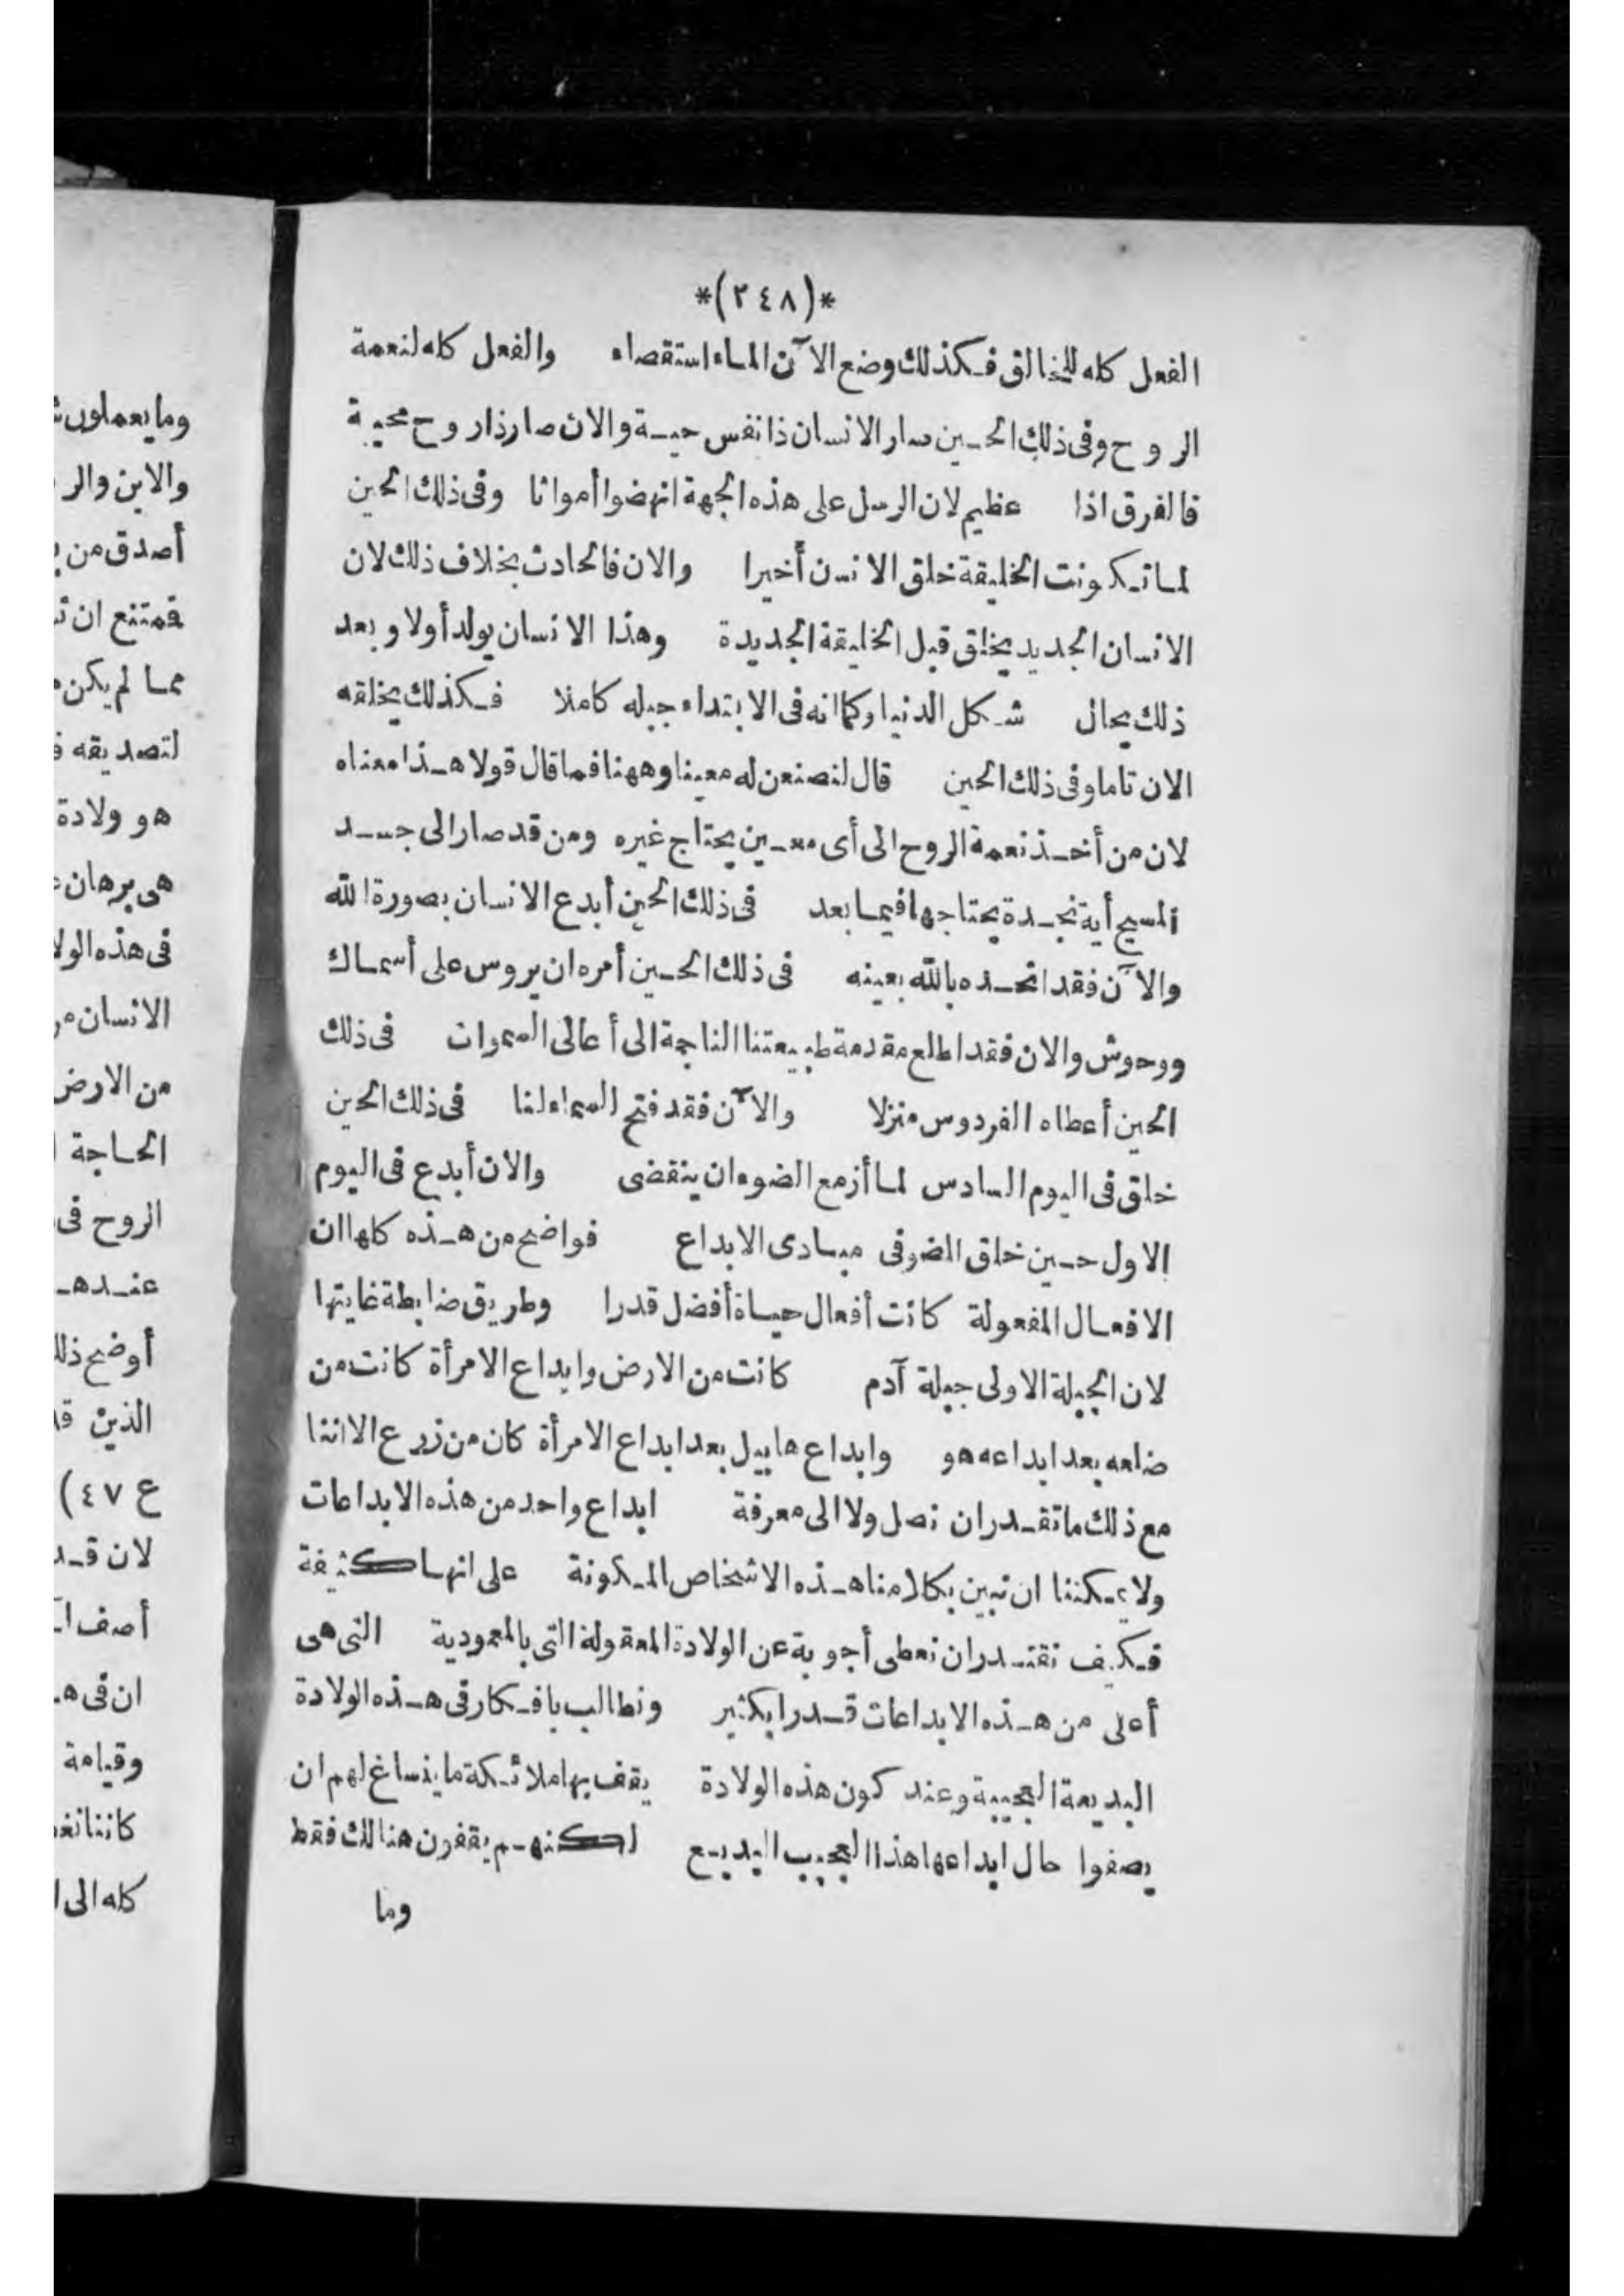 *(٢٤٨)*
الفعل كله للخالق فكذلك وضع الآن الماء استقصاء والفعل كله لنعمة
الروح وفى ذلك الحين صار الانسان ذا نفس حية والان صار ذا روح محيية
فالفرق اذا عظيم لان الرسل على هذه الجهة انهضوا أمواتا وفى ذلك الحين
لما تكونت الخليقة خلق الانسن أخيرا والان فالحادث بخلاف ذلك لان
الانسان الجديد يخلق قبل الخليقة الجديدة وهذا الانسان يولد أولا وبعد
ذلك يحال شكل الدنيا وكما انه فى الابتداء جبله كاملا فكذلك يخلقه
الان تاما وفى ذلك الحين قال لنصنعن له معينا وههنا فما قال قولا هذا معناه
لان من أخذ نعمة الروح الى أى معين يحتاج غيره ومن قد صار الى جسد
المسيح أية نجدة يحتاجها فيما بعد فى ذلك الحين أبدع الانسان بصورة الله
والآن فقد اتحده بالله بعينه فى ذلك الحين أمره ان يروس على أسماك
ووحوش والان فقد اطلع مقدمة طبيعتنا الناجمة الى أعالى السموات فى ذلك
الحين أعطاه الفردوس منزلا والآن فقد فتح السماء لنا فى ذلك الحين
خلق فى اليوم السادس لما أزمع الضوء ان ينقضى والان أبدع فى اليوم
الاول حين خلق الضو فى مبادى الابداع فواضح من هذه كلها ان
الافعال المفعولة كانت أفعال حياة أفضل قدرا وطريق ضابطة غايتها
لان الجبلة الاولى جبلة آدم كانت من الارض وابداع الامرأة كانت من
ضلعه بعد ابداعه هو وابداع هابيل بعد ابداع الامرأة كان من زرع الا اننا
مع ذلك ما نقدر ان نصل ولا الى معرفة ابداع واحد من هذه الابداعات
ولا يمكننا ان نبين بكلامنا هذه الاشخاص المكونة على انها كثيفة
فكيف نقتدر ان نعطى أجوبة عن الولادة المعقولة التى بالمعمودية التى هى
أعلى من هذه الابداعات قدرا بكثير ونطالب بافكار فى هذه الولادة
البديعة العجيبة وعند كون هذه الولادة يقف بها ملائكة ما ينساغ لهم ان
يصفوا حال ابداعها هذا العجيب البديع لكنهم يقفون هنالك فقط
وما
وما يعملون
والابن والر
أصدق من
فمتنع ان
مما لم يكن
لتصديقه
هو ولادة
هى برهان
فى هذه الولا
الانسان
من الارض
الحاجة
الروح فى
عندهـ
أوضح ذلك
الذين قد
ع ٤٧)
لان قد
أصف
ان فى هـ
وقيامة
كاننا نغـ
كله الى